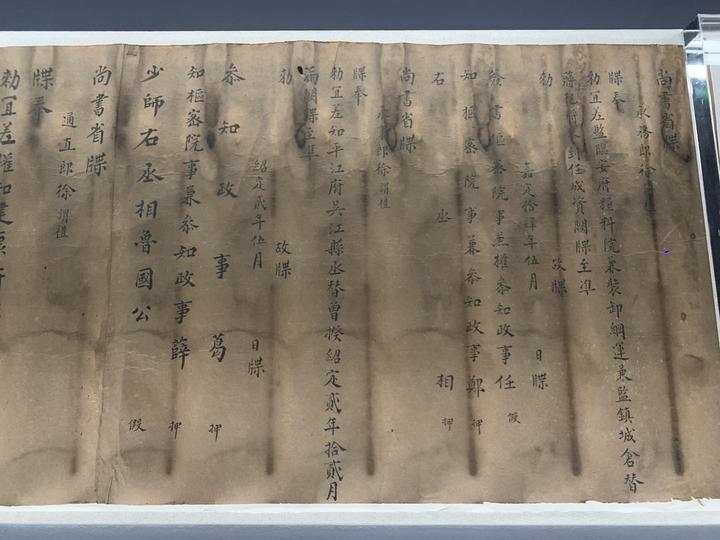 尚書省牒
承務郎徐謂禮
牒奉
勑宜差監臨安府糧料院兼裝卸綱運兼監鎮城倉替
任成資闕牒至準
勑
故牒
嘉定拾肆年伍月 日牒
簽書樞密院事兼權參知政事任 假
知樞密院事兼參知政事鄭 押
右丞相 押
尚書省牒
承務郎徐謂禮
牒奉
勑宜差知平江府吳江縣丞替曾揆紹定貳年拾貳月
滿闕牒至準
勑
故牒
紹定貳年伍月 日牒
參知政事葛 押
知樞密院事兼參知政事薛 押
少師右丞相魯國公 假
尚書省牒
通直郎徐謂禮
牒奉
勑宜差權知建康府